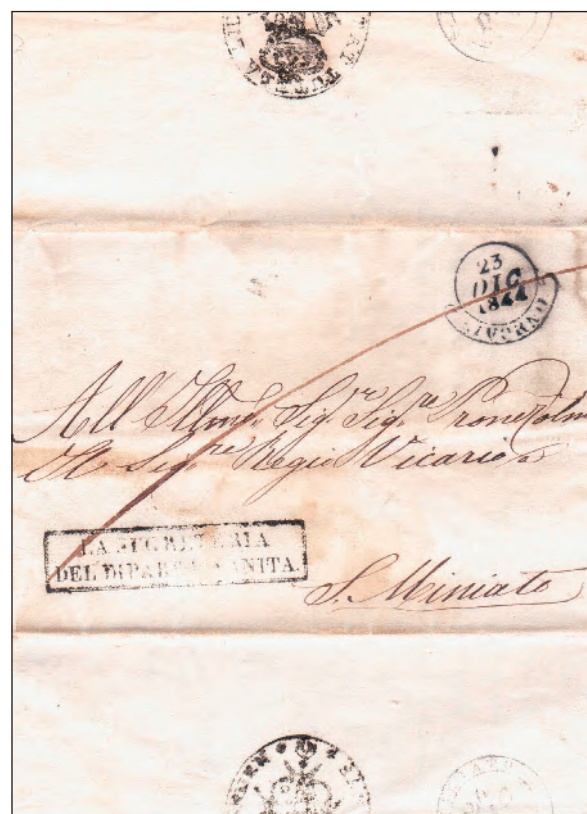 23
DIC
1844
LIVORNO
All' Illmo. Sig.re Sig.re Prone Colmo
Il Sig.re Regio Vicario
LA SEGRETERIA
DEL DIPART SANITA
S. Miniato